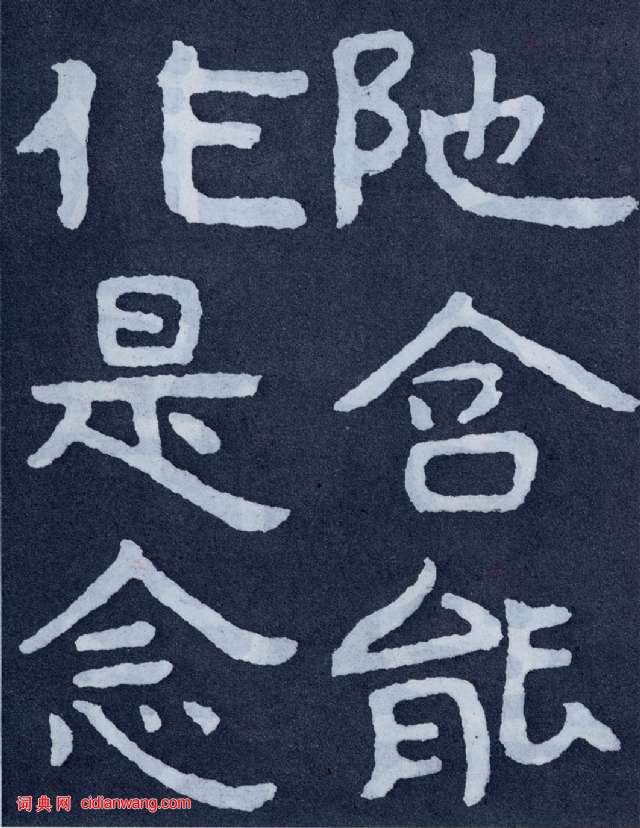 阤含能
作是念
词典网 cidianwang.com